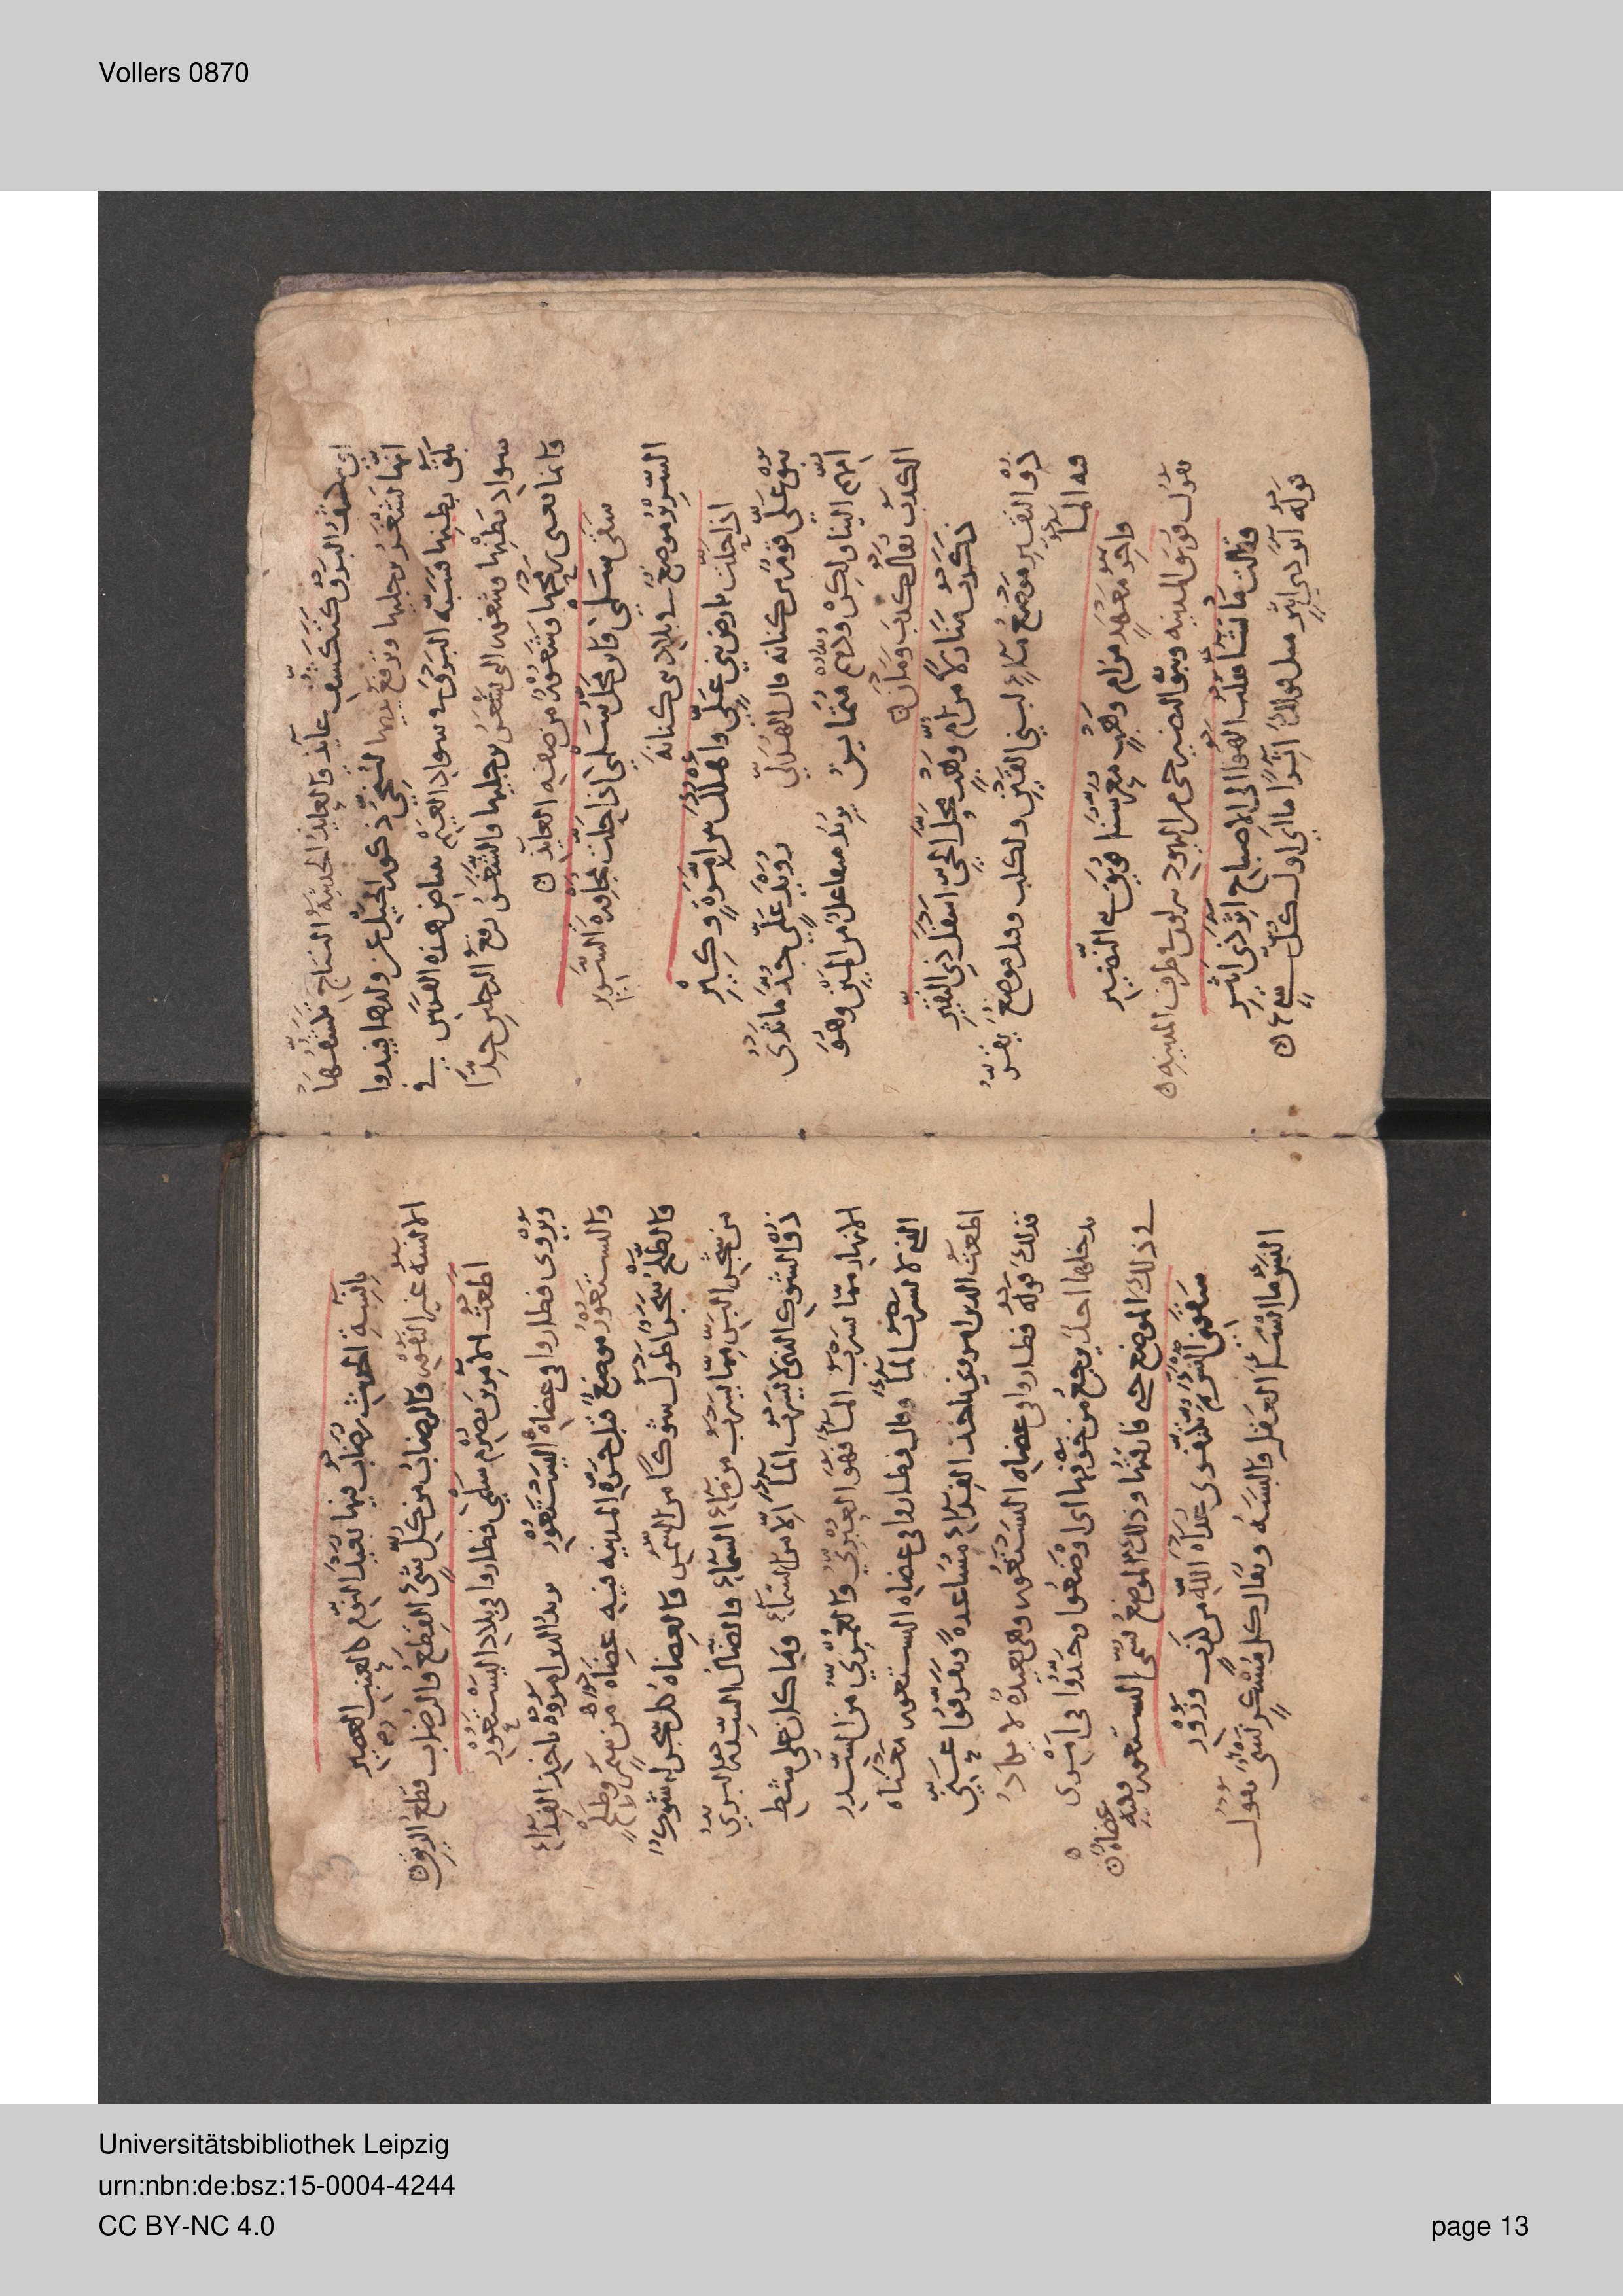 Vollers 0870
أي شوف البرق كتكشف عايذ والعايذ الحديثة النتاج وتشغرها
انها تشغر برجليها وترفع يديها لتنحي ذكور الخيل عن ولدها فيبدوا
بلق بطنها فشبه البرق في سواد الغيم ببياض هذه الفرس في
سواد بطنها وشغور برجليها والشغر رفع الرجلين جدا
وانما رمحها وشغورها من صفة العايذ
سقى سلمى واين محل سلمى اذا حلت مجاورة السرير
السرير موضع في بلاد بني كنانه
اذا حلت بارض بني علي واهلك بين امرة وكير
بنو علي قوم من كنانه قال الهذلي رويد علي جد ما ثدي
امهم الينا ولكن ودهم متماين يريد متفاعل من المين وهو
الكذب يقال كذب ومان
ذكرت منازلا من ام وهب محل الحي اسفل ذي النقير
ذو النقير موضع ماء لبني القين ولكلب وقيل موضع
فيه الما
واخر معهد من ام وهب معرسنا فويق بني النضير
يقول فويق المدينه وبنو النضير حي من اليهود ينزلون طرف المدينه
وقالت ما تشا فقلت الهوا الى الاصباح اثر ذي اثير
قوله اثر ذي اثير مثل قولك اثرا ما اي اول كل شيء
بانسة الحديث رضاب فيها بعيد النوم كالعنب العصير
الانسة غير النفور والرضاب من كل شي القطع والرضاب قطع الريق
اطعت الامرين بصرم سلمى فطاروا في بلاد اليستعور
ويروى فطاروا في عضاه اليستعور يريد الذين امروه باخذ الفداء
واليستعور موضع قبل حرة المدينه فيه عضاه من سمر وطلح
والطلح شجر اطول شوكا من السمر والعضاه كل شجر له شوك
من شجر البر مما يشرب من ماء السماء والضال السدر البري
ذو الشوك الذي لا يشرب الما الا من السماء وما كان على شط
الانهار مما يشرب الما فهو العبري والعمري من السدر
الذي لا يشرب الما وقال فطاروا في عضاه اليستعور معناه
اطعت الذين امروني باخذ الفداء مساعدة وتفرقوا عني
فذلك قوله فطاروا في عضاه اليستعور وهي بعيدة لا يكاد
يدخلها احد يرجع من خوفها اي اوضعوا وجدوا في امري
في ذلك الموضع حتى وذلك الموضع يسمى اليستعور وفيه
عضاه
سقوني النسء ثم تكنفوني عداة الله من كذب وزور
النسء ما انسا العقل ويقال كل مسكر نسي يقول
Universitätsbibliothek Leipzig
urn:nbn:de:bsz:15-0004-4244
CC BY-NC 4.0
page 13